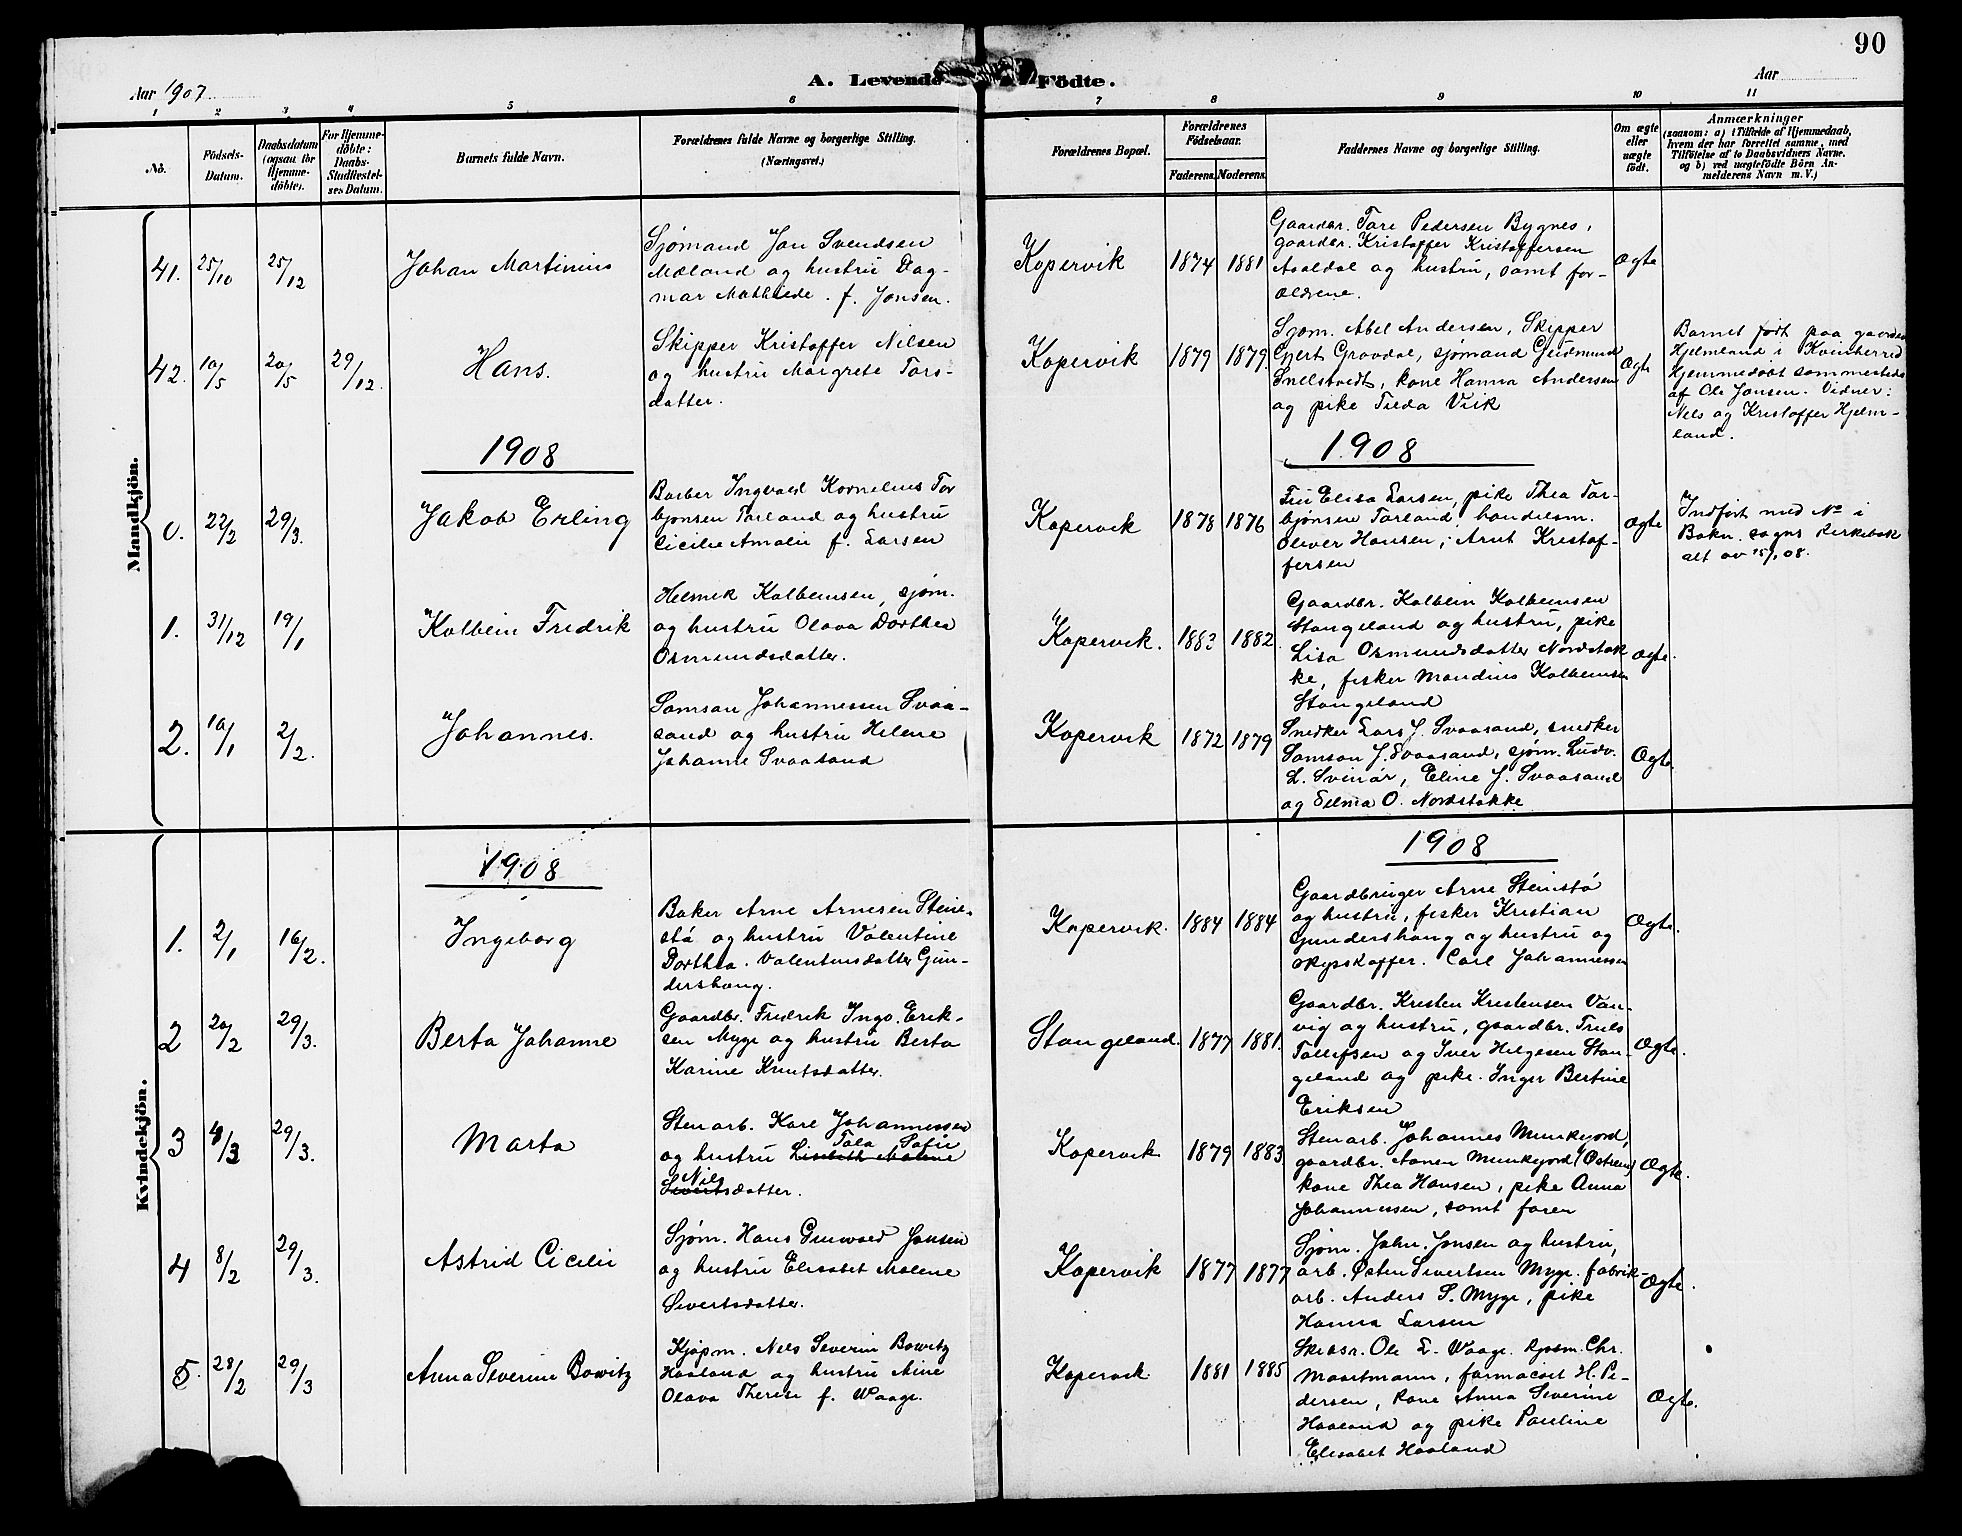 90
A. Levende Fødte.
Aar 1907
Aar
1 2 3 4 5 6 7 8 9 10 11
No.
Födsels-
Datum.
Daabsdatum
(ogsaa for
Hjemme-
døbte).
For Hjemme-
døbte:
Daabs-
Stadfæstel-
ses Datum.
Barnets fulde Navn.
Forældrenes fulde Navne og borgerlige Stilling.
(Næringsvei.)
Forældrenes Bopæl.
Forældrenes
Födselsaar.
Faderens. Moderens.
Faddernes Navne og borgerlige Stilling.
Om ægte
eller
uægte
født.
Anmærkninger
(saasom: a) i Tilfælde af Hjemmedaab,
hvem der har forrettet samme, med
Tilføielse af to Daabsvidners Navne,
og b) ved uægtefødte Börn An-
melderens Navn m. V.)
Mandkjön.
41. 25/10 25/12
Johan Martinius
Sjømand Jon Svendsen
Mæland og hustru Dag-
mar Mathilde. f. Jonsen.
Kopervik 1874 1881
Gaardbr. Tore Pedersen Bygnes,
gaardbr. Kristoffer Kristoffersen
Aaaldal og hustru, samt for-
ældrene.
Ægte
42. 10/5 20/5 29/12
Hans.
Skipper Kristoffer Nilsen
og hustru Margrete Tors-
datter.
Kopervik 1879 1879.
Sjøm. Abel Andersen, Skipper
Gjert Gravdal, sjømand Gudmund
Snelstvedt, kone Hanna Andersen
og pike Tilda Vik
Ægte
Barnet født paa gaarden
Hjelmland i Kvinherred
Hjemmedøbt sammesteds
af Ole Jonsen. Vidner:
Nels og Kristoffer Hjelm-
land.
1908
1908
0. 22/2 29/3.
Jakob Erling
Barber Ingvald Kornelius Tor
bjønsen Torland og hustru
Cicilie Amalie f. Larsen
Kopervik 1878 1876
Fru Elisa Larsen, pike Thea Tor-
bjønsen Torland, handelsm.
Oliver Hansen, Arnt Kristof-
fersen
Ægte
Indført med No i
Bokn sogns kirkebok
alt ov 15/1 08.
1. 31/12 19/1
Kolbein Fredrik
Helmik Kolbeinsen, sjøm.
og hustru Olava Dorthea
Osmundsdatter.
Kopervik. 1883 1882
Gaardbr. Kolbein Kolbeinsen
Stangeland og hustru, pike
Lisa Osmundsdatter Nordstok
ke, fisker Mandius Kolbeinsen
Stangeland
Ægte.
2. 10/1 2/2.
Johannes.
Samson Johannessen Svaa-
sand og hustru Helene
Johanne Svaasand
Kopervik 1872 1879
Snedker Lars J. Svaasand, snedker
Samson J. Svaasand, sjøm. Ludv.
L. Svinør, Eline J. Svaasand
og Selma O. Nordstokke
Ægte.
Kvindekjön.
1908
1908
1. 2/1 16/2.
Ingeborg
Baker Arne Arnesen Steine-
stø og hustru Valentine
Dorthea. Valentinsdatter Gun-
dershaug.
Kopervik. 1884 1884
Gaardbruger Arne Steinstø
og hustru, fisker Kristian
Gundershaug og hustru og
skysskaffer. Carl Johannessen
Ægte.
2 20/2 29/3.
Berta Johanne
Gaardbr. Fredrik Ingv. Erik-
sen Myge og hustru Berta
Karine Knutsdatter.
Stangeland. 1877 1881.
Gaardbr. Kristen Kristensen Van-
vig og hustru, gaardbr. Truls
Tollefsen og Iver Helgesen Stan-
geland og pike. Inger Bertine
Eriksen
Ægte.
3 4/3 29/3.
Marta
Stenarb. Karl Johannessen
Tala Sofie
og hustru Lisebeth Malene
Nils
Sivertsdatter.
Kopervik 1879 1883
Stenarb. Johannes Munkejord,
gaardbr. Aanen Munkejord (Østrem)
kone Thea Hansen, pike Anna
Johannessen, samt faren
Ægte.
4 8/2 29/3.
Astrid Cicilie
Sjøm. Hans Grunvald Jonsen
og hustru Elisabet Malene
Sivertsdatter.
Kopervik 1877 1877
Sjøm. John. Jonsen og hustru,
arb. Østen Sivertsen Myge. fabrik-
arb. Anders S. Myge, pike
Hanna Larsen
Ægte.
5. 28/2 29/3
Anna Severine Bowitz
Kjøpm. Nels Severin Bowitz
Haaland og hustru Aine
Olava Therese f. Waage.
Kopervik 1881 1885
Skibsr. Ole L. Waage. kjøbm. Chr.
Maartmann, farmaceut H. Pe-
dersen, kone Anna Severine
Haaland og pike Pauline
Elisabet Haaland
Ægte.